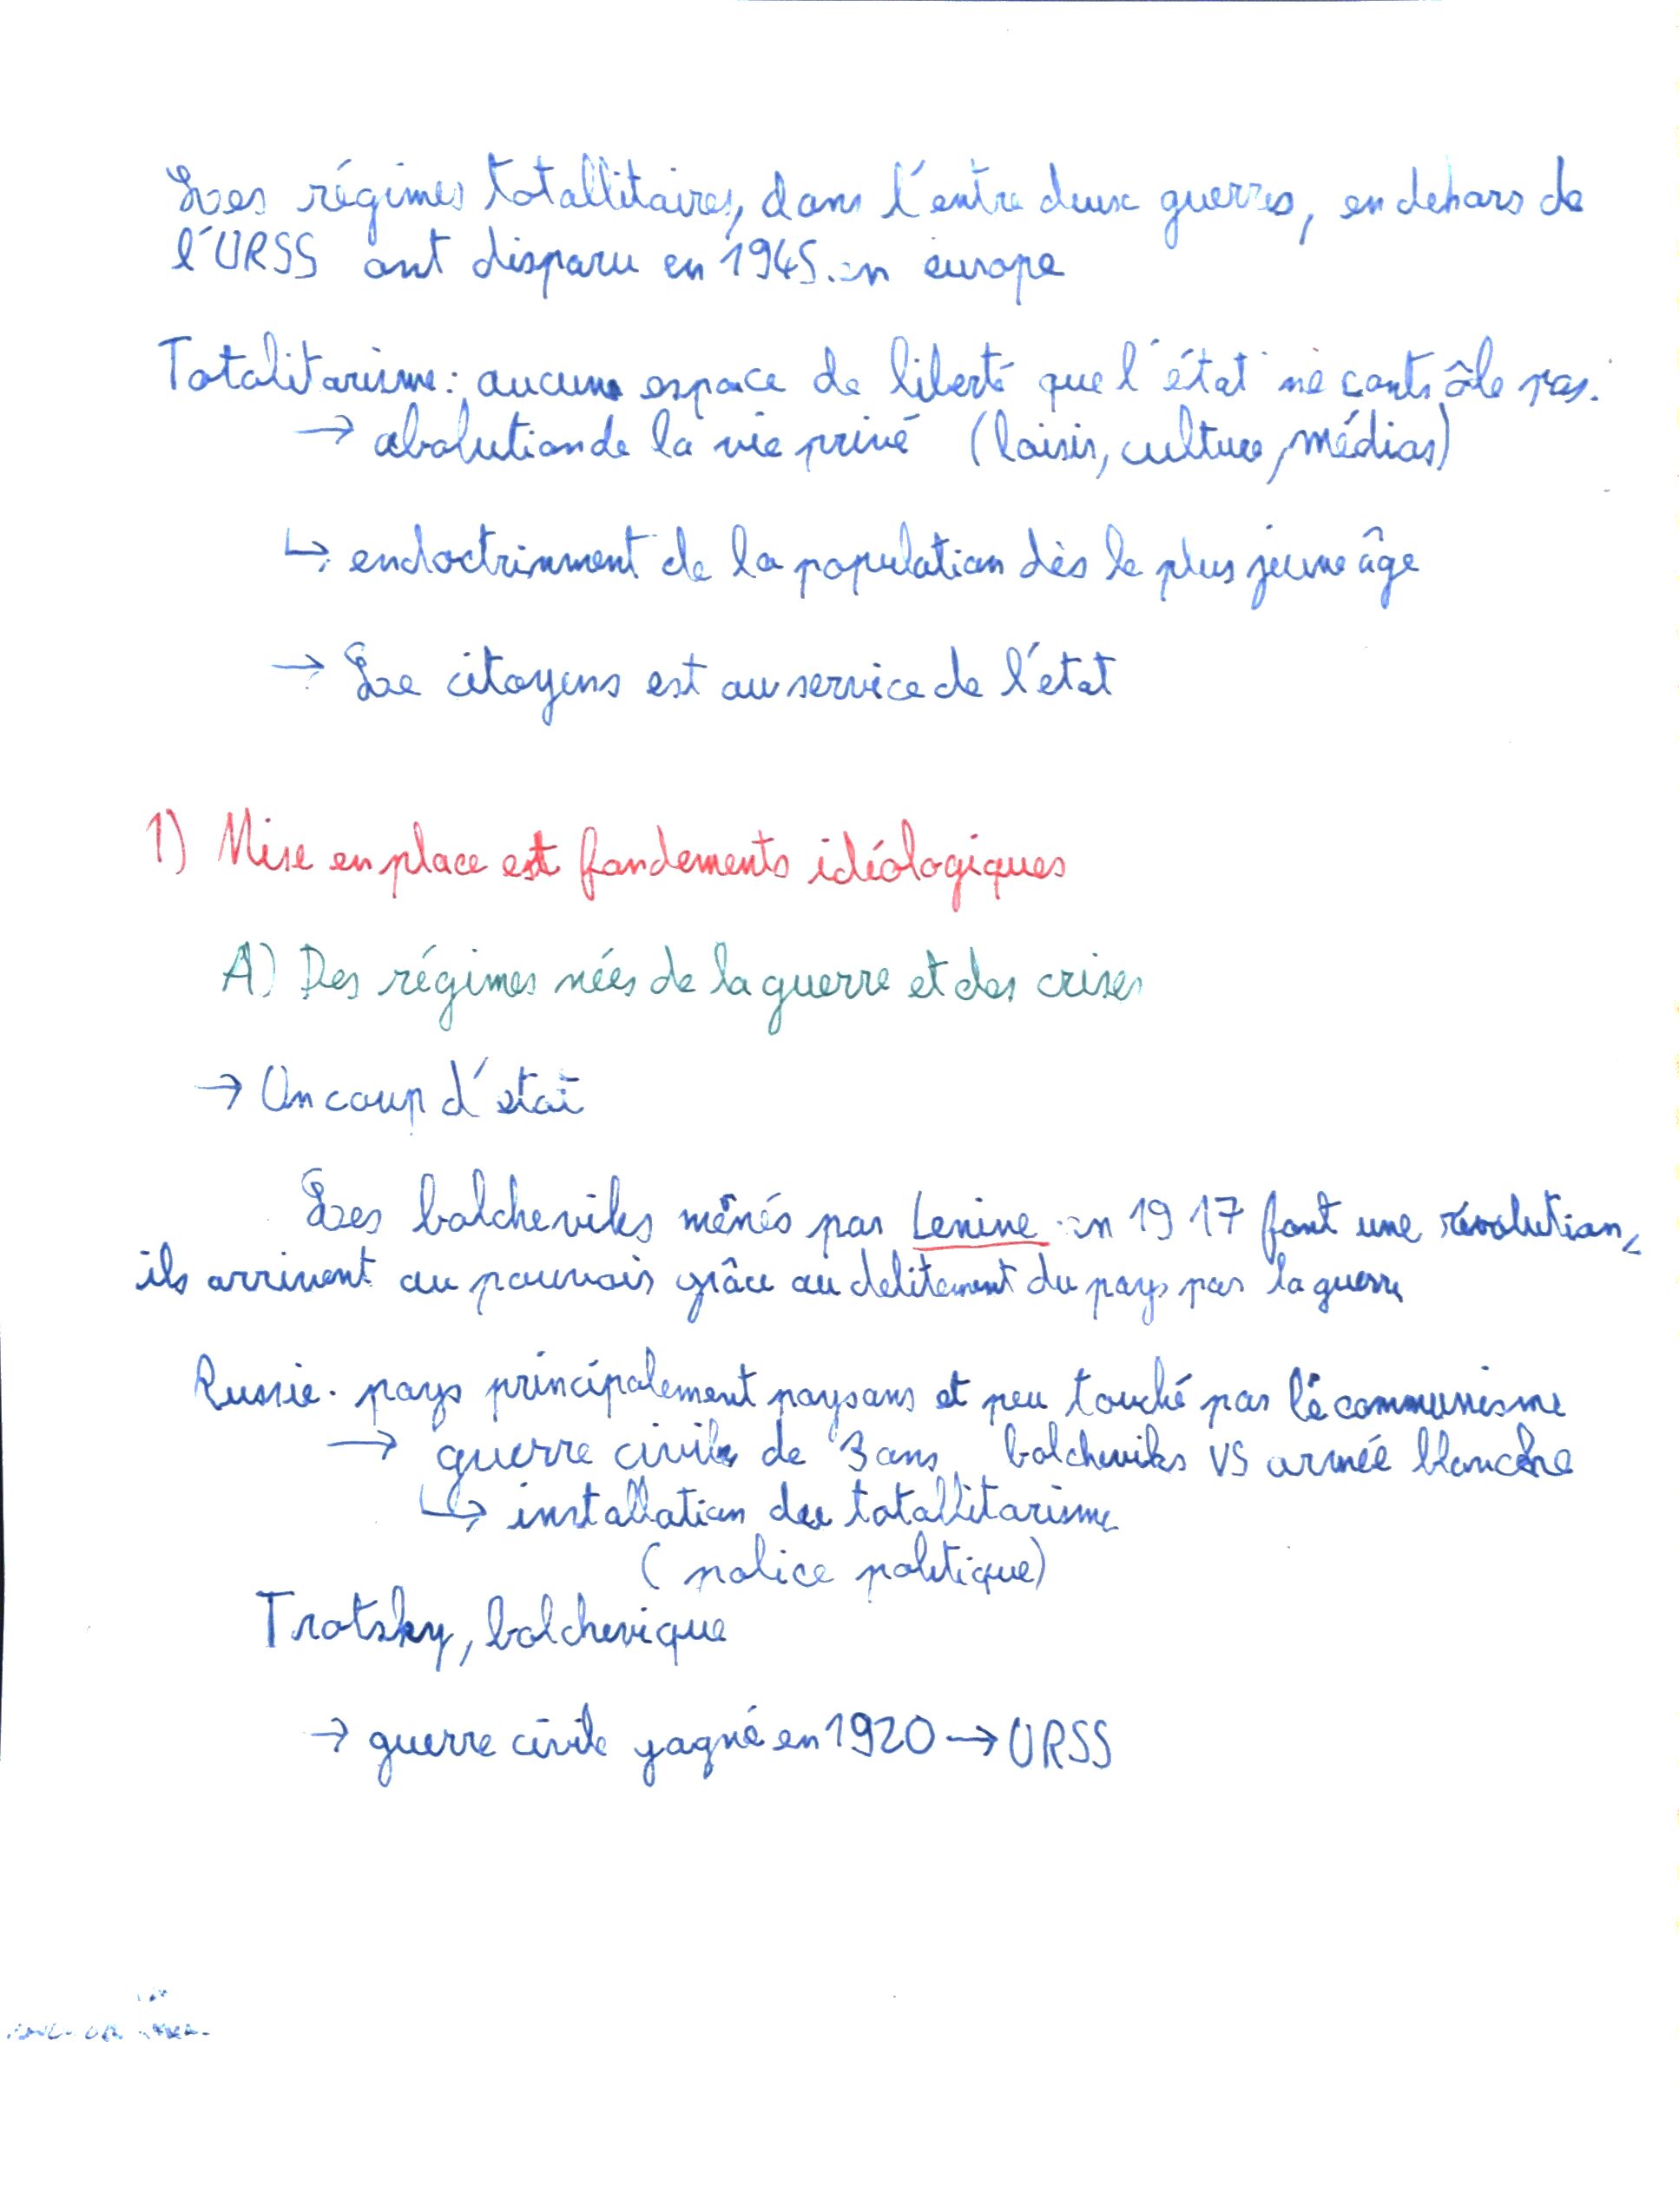 Les régimes totallitaires, dans l'entre deux guerres, en dehors de
l'URSS ont disparu en 1945. en europe
Totalitarisme : aucune espace de liberté que l'état ne contrôle pas.
→ abolution de la vie privé (loisir, culture, médias)
↳ endoctrinment de la population dès le plus jeune âge
→ Le citoyens est au service de l'état
1) Mise en place et fondements idéologiques
A) Des régimes nées de la guerre et des crises
→ Un coup d'état
Les bolcheviks ménés par Lenine en 1917 font une révolution,
ils arrivent au pouvoir grâce au delitement du pays par la guerre
Russie. pays principalement paysans et peu touché par le communisme
→ guerre civile de 3 ans bolcheviks VS armée blanche
↳ installation du totallitarisme
(police politique)
Trotsky, bolchevique
→ guerre civile gagné en 1920 → URSS